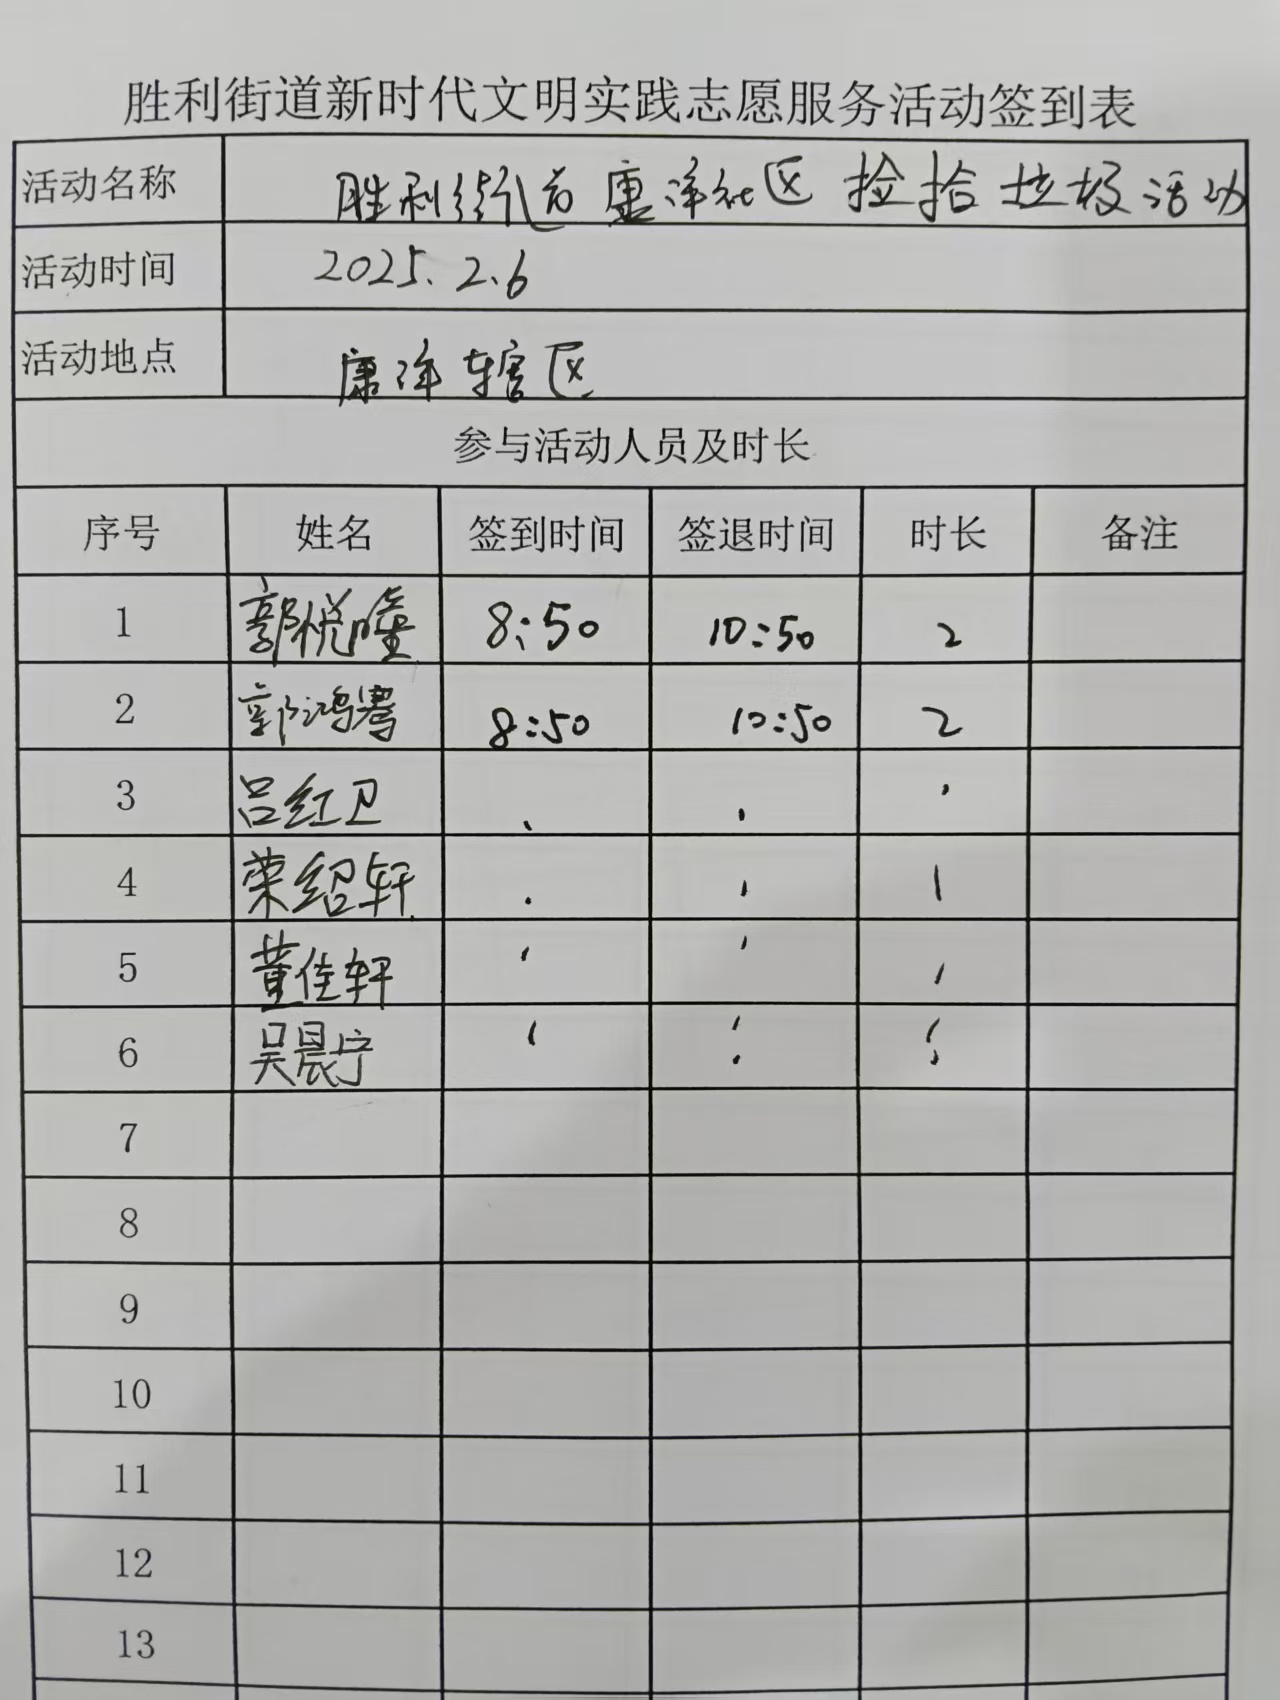 胜利街道新时代文明实践志愿服务活动签到表
活动名称 胜利街道康洋社区捡拾垃圾活动
活动时间 2025.2.6
活动地点 康洋辖区
参与活动人员及时长
序号 姓名 签到时间 签退时间 时长 备注
1 郭悦瞳 8:50 10:50 2
2 郭鸿骞 8:50 10:50 2
3 吕红卫
4 荣绍轩
5 董佳轩
6 吴晨宁
7
8
9
10
11
12
13